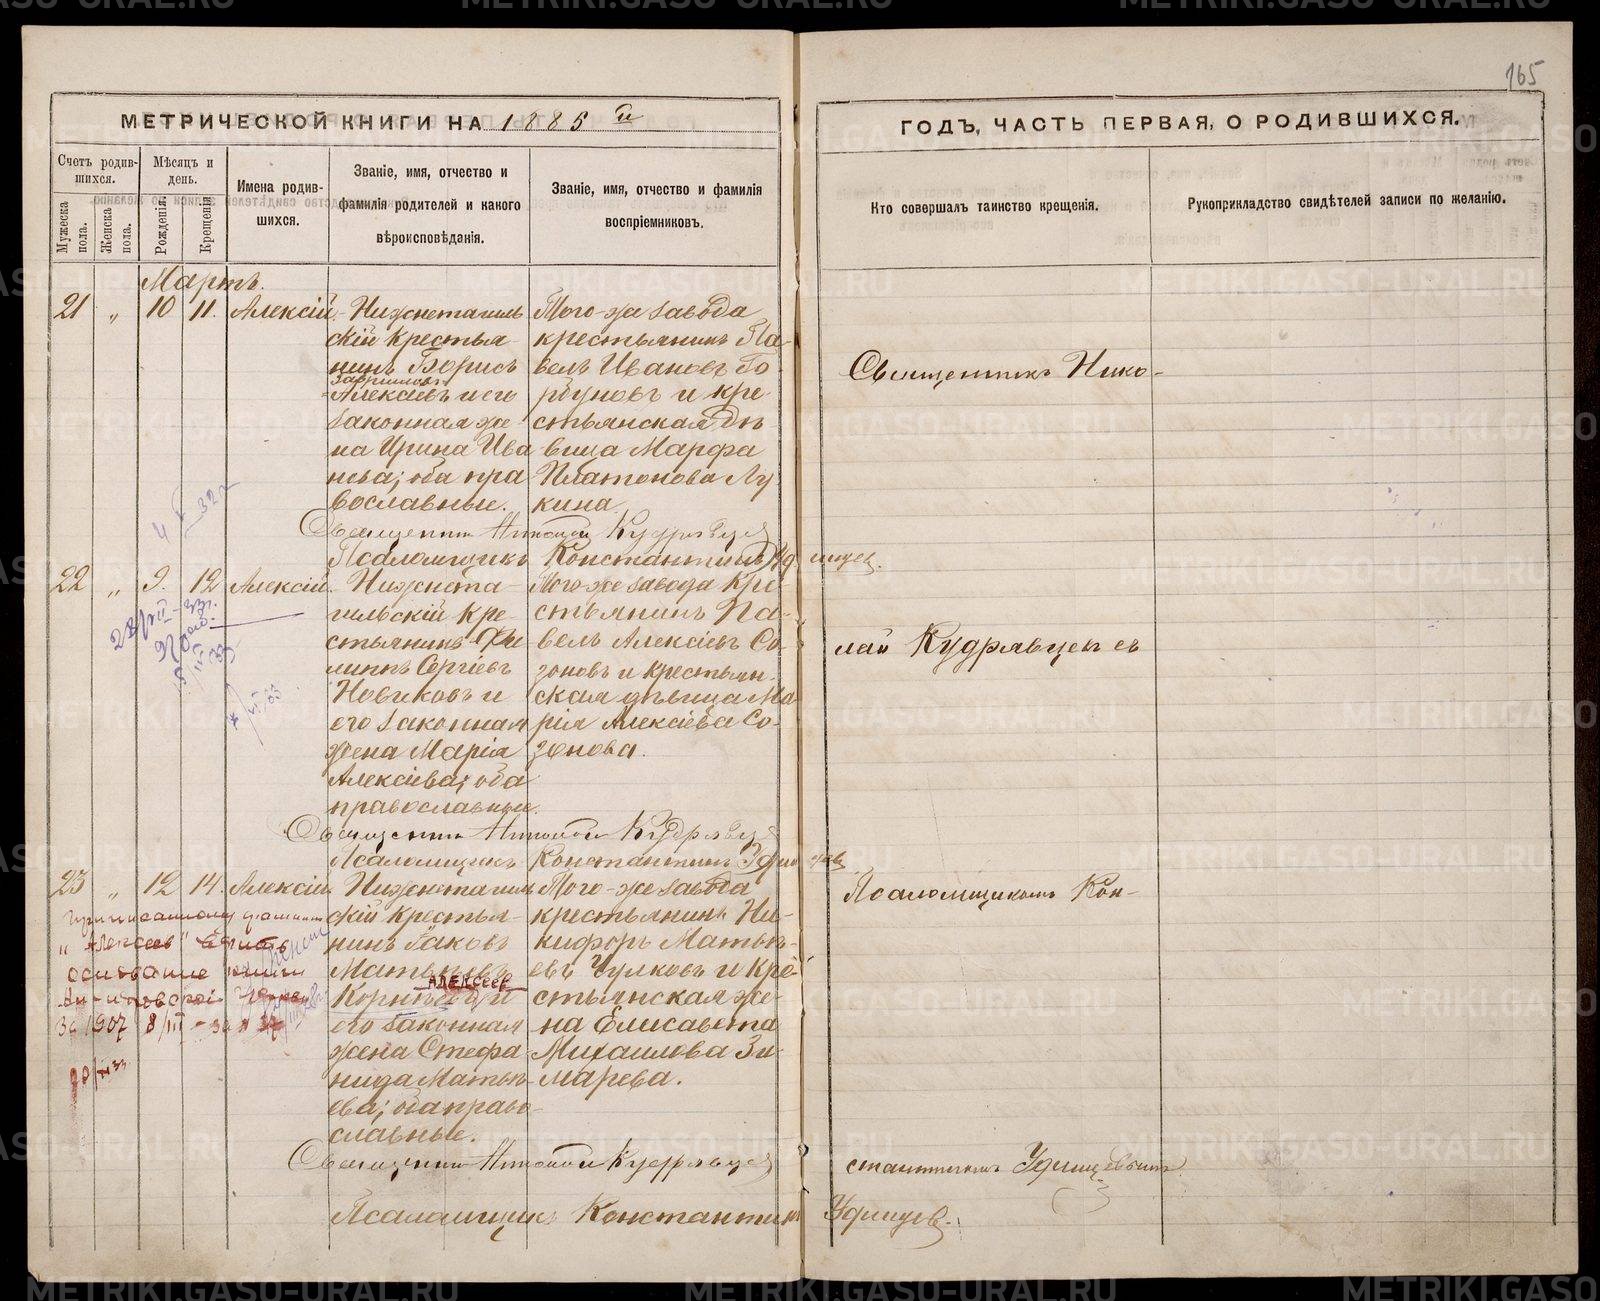 165
МЕТРИЧЕСКОЙ КНИГИ НА 1885 й
ГОДЪ, ЧАСТЬ ПЕРВАЯ, О РОДИВШИХСЯ.
Счетъ родив-
шихся.
Мѣсяцъ и
день.
Мужеска
пола.
Женска
пола.
Рожденія.
Крещенія.
Имена родив-
шихся.
Званіе, имя, отчество и
фамилія родителей и какого
вѣроисповѣданія.
Званіе, имя, отчество и фамилія
воспріемниковъ.
Кто совершалъ таинство крещенія.
Рукоприкладство свидѣтелей записи по желанію.
Мартъ.
21 „ 10 11. Алексій.
Нижнетагиль
скій крестья-
нинъ Борисъ
Алексіевъ и его
законная же
на Ирина Ива
нова; оба пра
вославные.
Того-же завода
крестьянинъ Па-
велъ Ивановъ Го
рбуновъ и кре
стьянская дѣ-
вица Марфа
Платонова Лу
кина.
Священникъ Николай Кудрявцев
Псаломщикъ Константинъ Удинцев.
22 „ 9. 12 Алексій.
Нижнета-
гильскій кре-
стьянинъ Фи
липпъ Сергіевъ
Новиковъ и
его законная
жена Марія
Алексіева; оба
православные.
Того-же завода кре-
стьянинъ Па-
велъ Алексіевъ Со-
зоновъ и крестьян-
ская дѣвица Ма
рія Алексіева Со-
зонова.
Священникъ Николай Кудрявцев
Псаломщикъ Константинъ Удинцев
23 „ 12 14. Алексій
Нижнетагиль
скій крестья-
нинъ Іаковъ
Матвѣевъ
АЛЕКСЕЕВ
его законная
жена Стефа-
нида Матвѣ-
ева; оба право-
славные.
Того-же завода
крестьянинъ Ни-
кифоръ Матвѣ-
евъ Чулковъ и кре-
стьянская же-
на Елисавета
Михаилова Зи-
марева.
„Алексеев"
основание
1907 8/III
Священникъ Николай Кудрявцев
Псаломщикъ Константинъ Удинцев.
Священникъ Нико-
лай Кудрявцевъ съ
Псаломщикомъ Кон-
стантиномъ Удинцевымъ